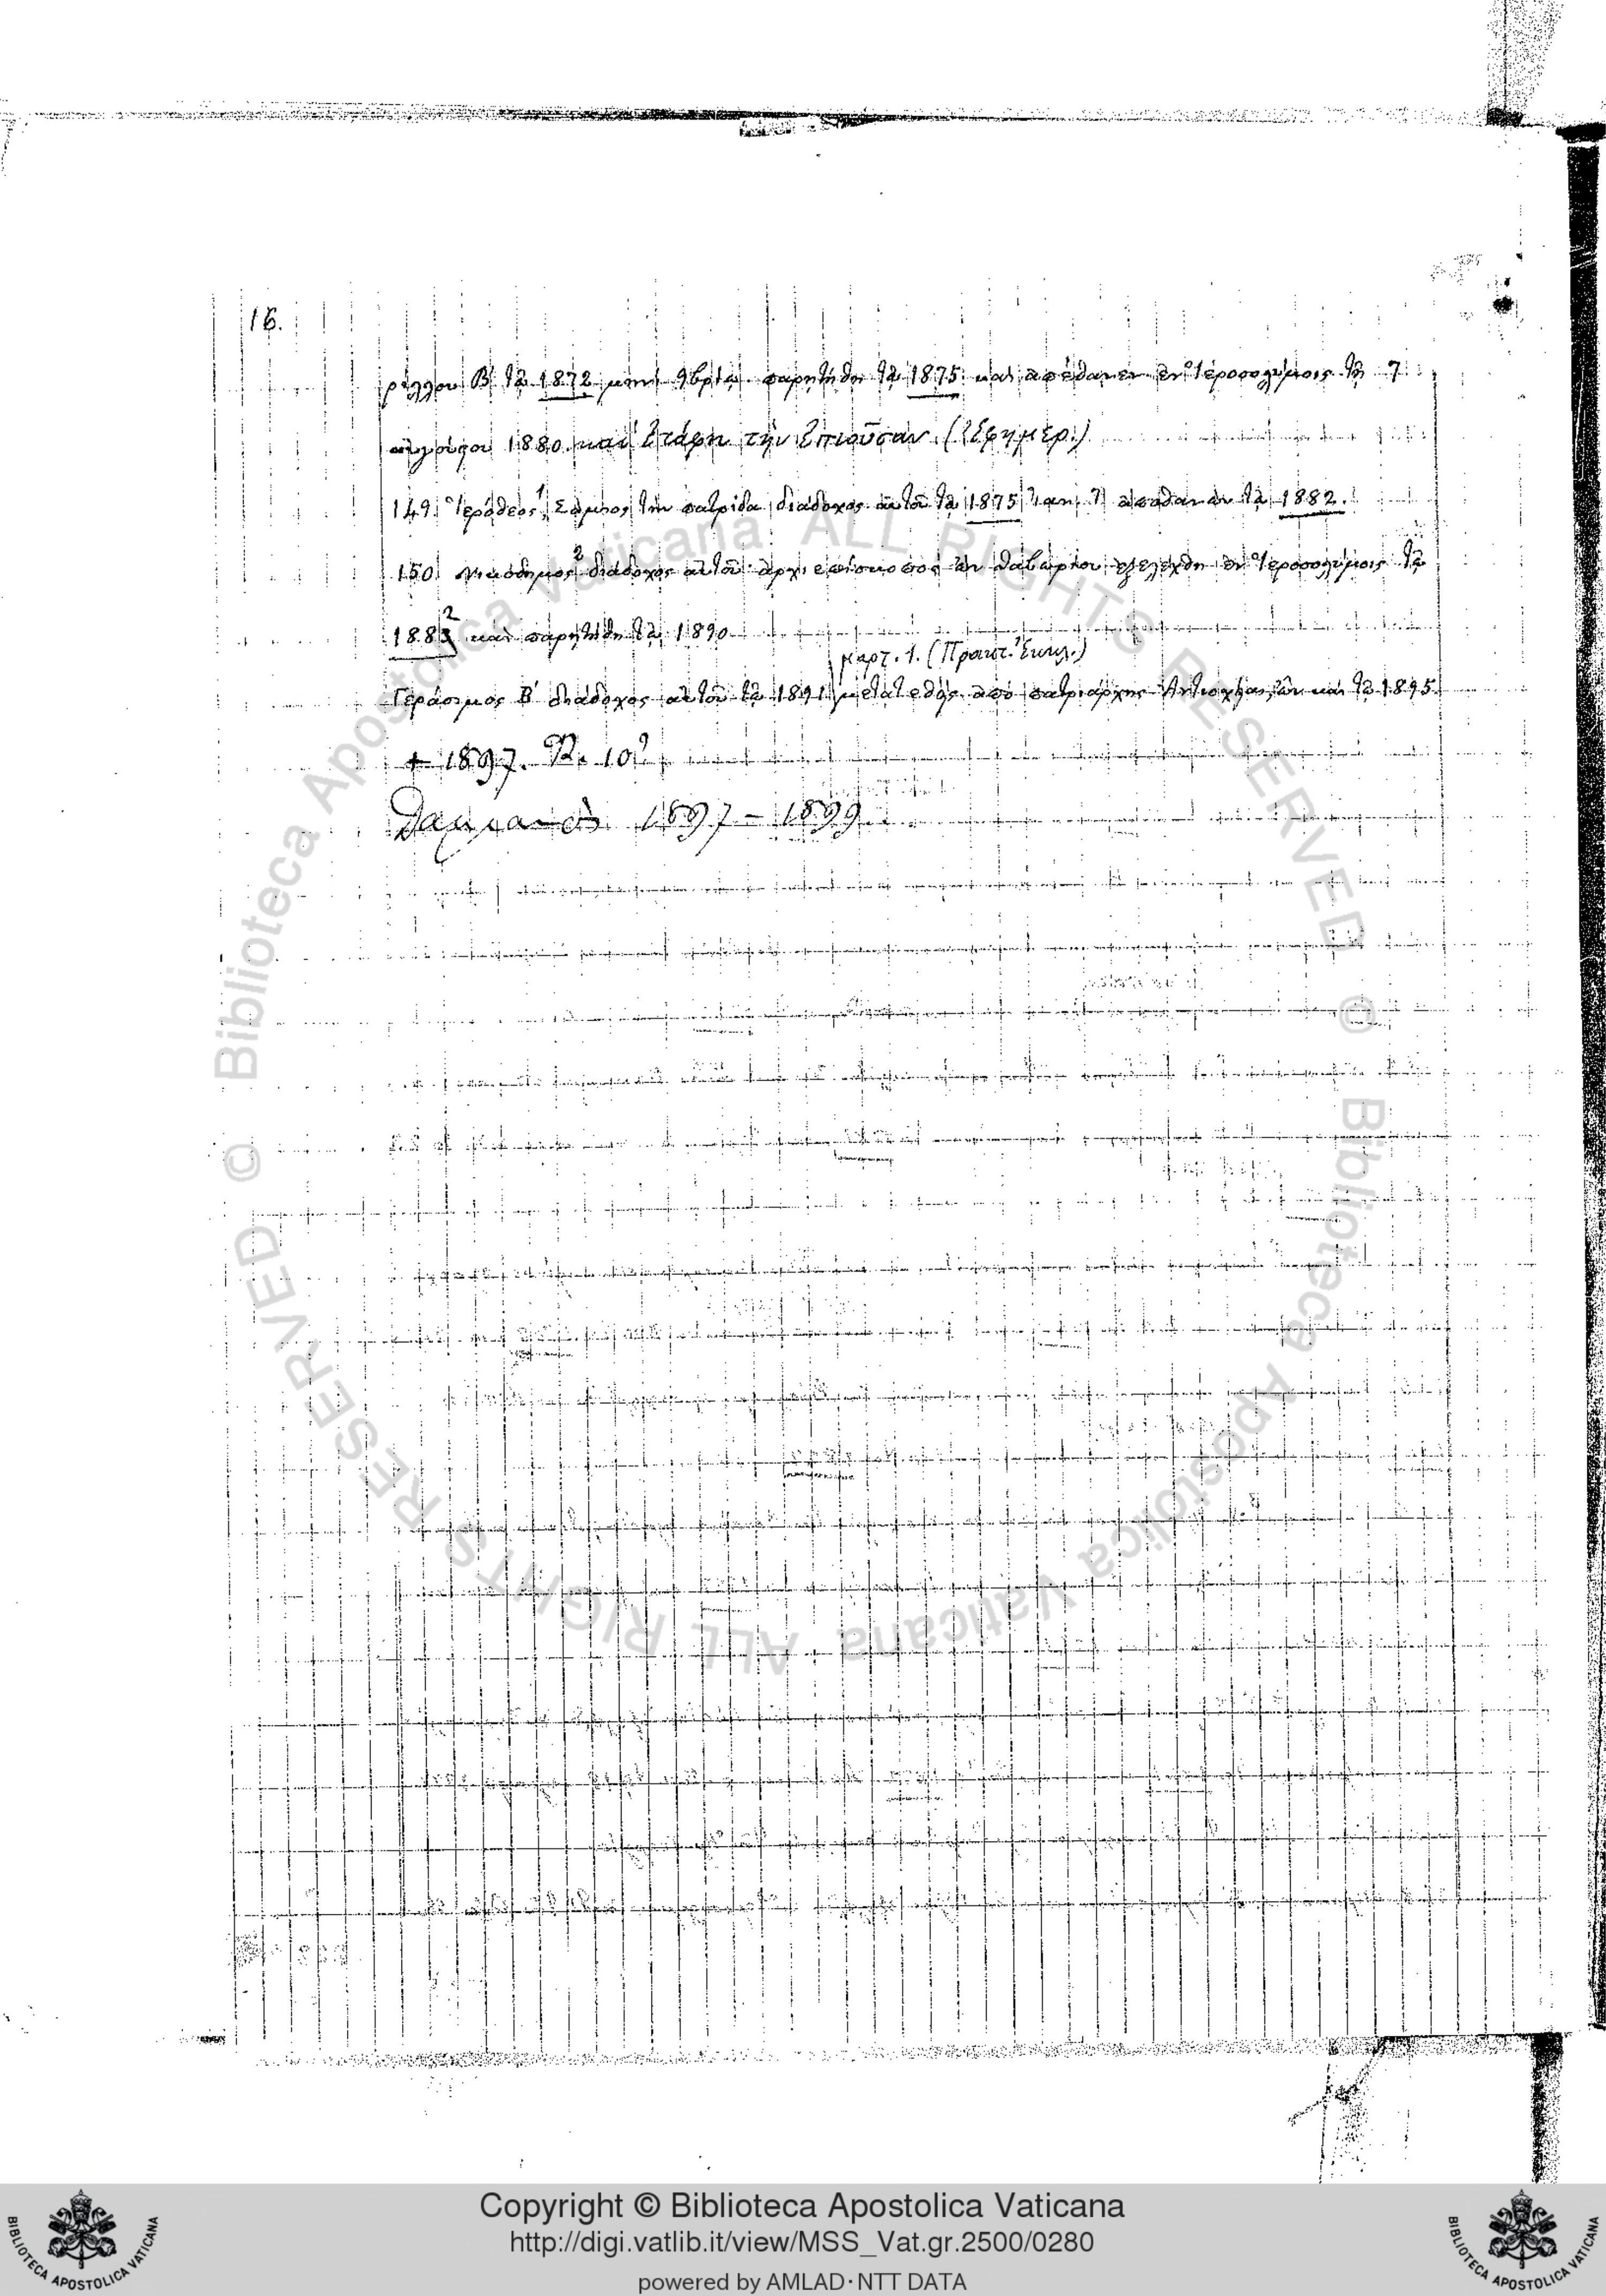 16.
ρίλλου Β΄ τῷ 1872 μηνὶ 9βρίῳ παρῃτήθη τῷ 1875 καὶ ἀπέθανεν ἐν Ἱεροσολύμοις τῇ 7
αὐγούστου 1880 καὶ ἐτάφη τὴν ἐπιοῦσαν. (Ἐφημερ.)
149 Ἱερόθεος 1 Σάμιος τὴν πατρίδα διάδοχος αὐτοῦ τῷ 1875 ἀπέθανεν τῷ 1882.
150 Νικόδημος 2 διάδοχος αὐτοῦ ἀρχιεπίσκοπος ὢν Θαβωρίου ἐξελέχθη ἐν Ἱεροσολύμοις τῷ
1883 2 καὶ παρῃτήθη τῷ 1890
μαρτ. 1. (Πρακτ. Ἐκκλ.)
Γεράσιμος Β΄ διάδοχος αὐτοῦ τῷ 1891 μετατεθεὶς ἀπὸ πατριάρχης Ἀντιοχείας ὢν καὶ τῷ 1895
+ 1897. 10
Δαμιανὸς 1897 - 1899
Copyright © Biblioteca Apostolica Vaticana
http://digi.vatlib.it/view/MSS_Vat.gr.2500/0280
powered by AMLAD·NTT DATA
BIBLIOTECA APOSTOLICA VATICANA
BIBLIOTECA APOSTOLICA VATICANA
© Biblioteca Apostolica Vaticana ALL RIGHTS RESERVED
© Biblioteca Apostolica Vaticana ALL RIGHTS RESERVED